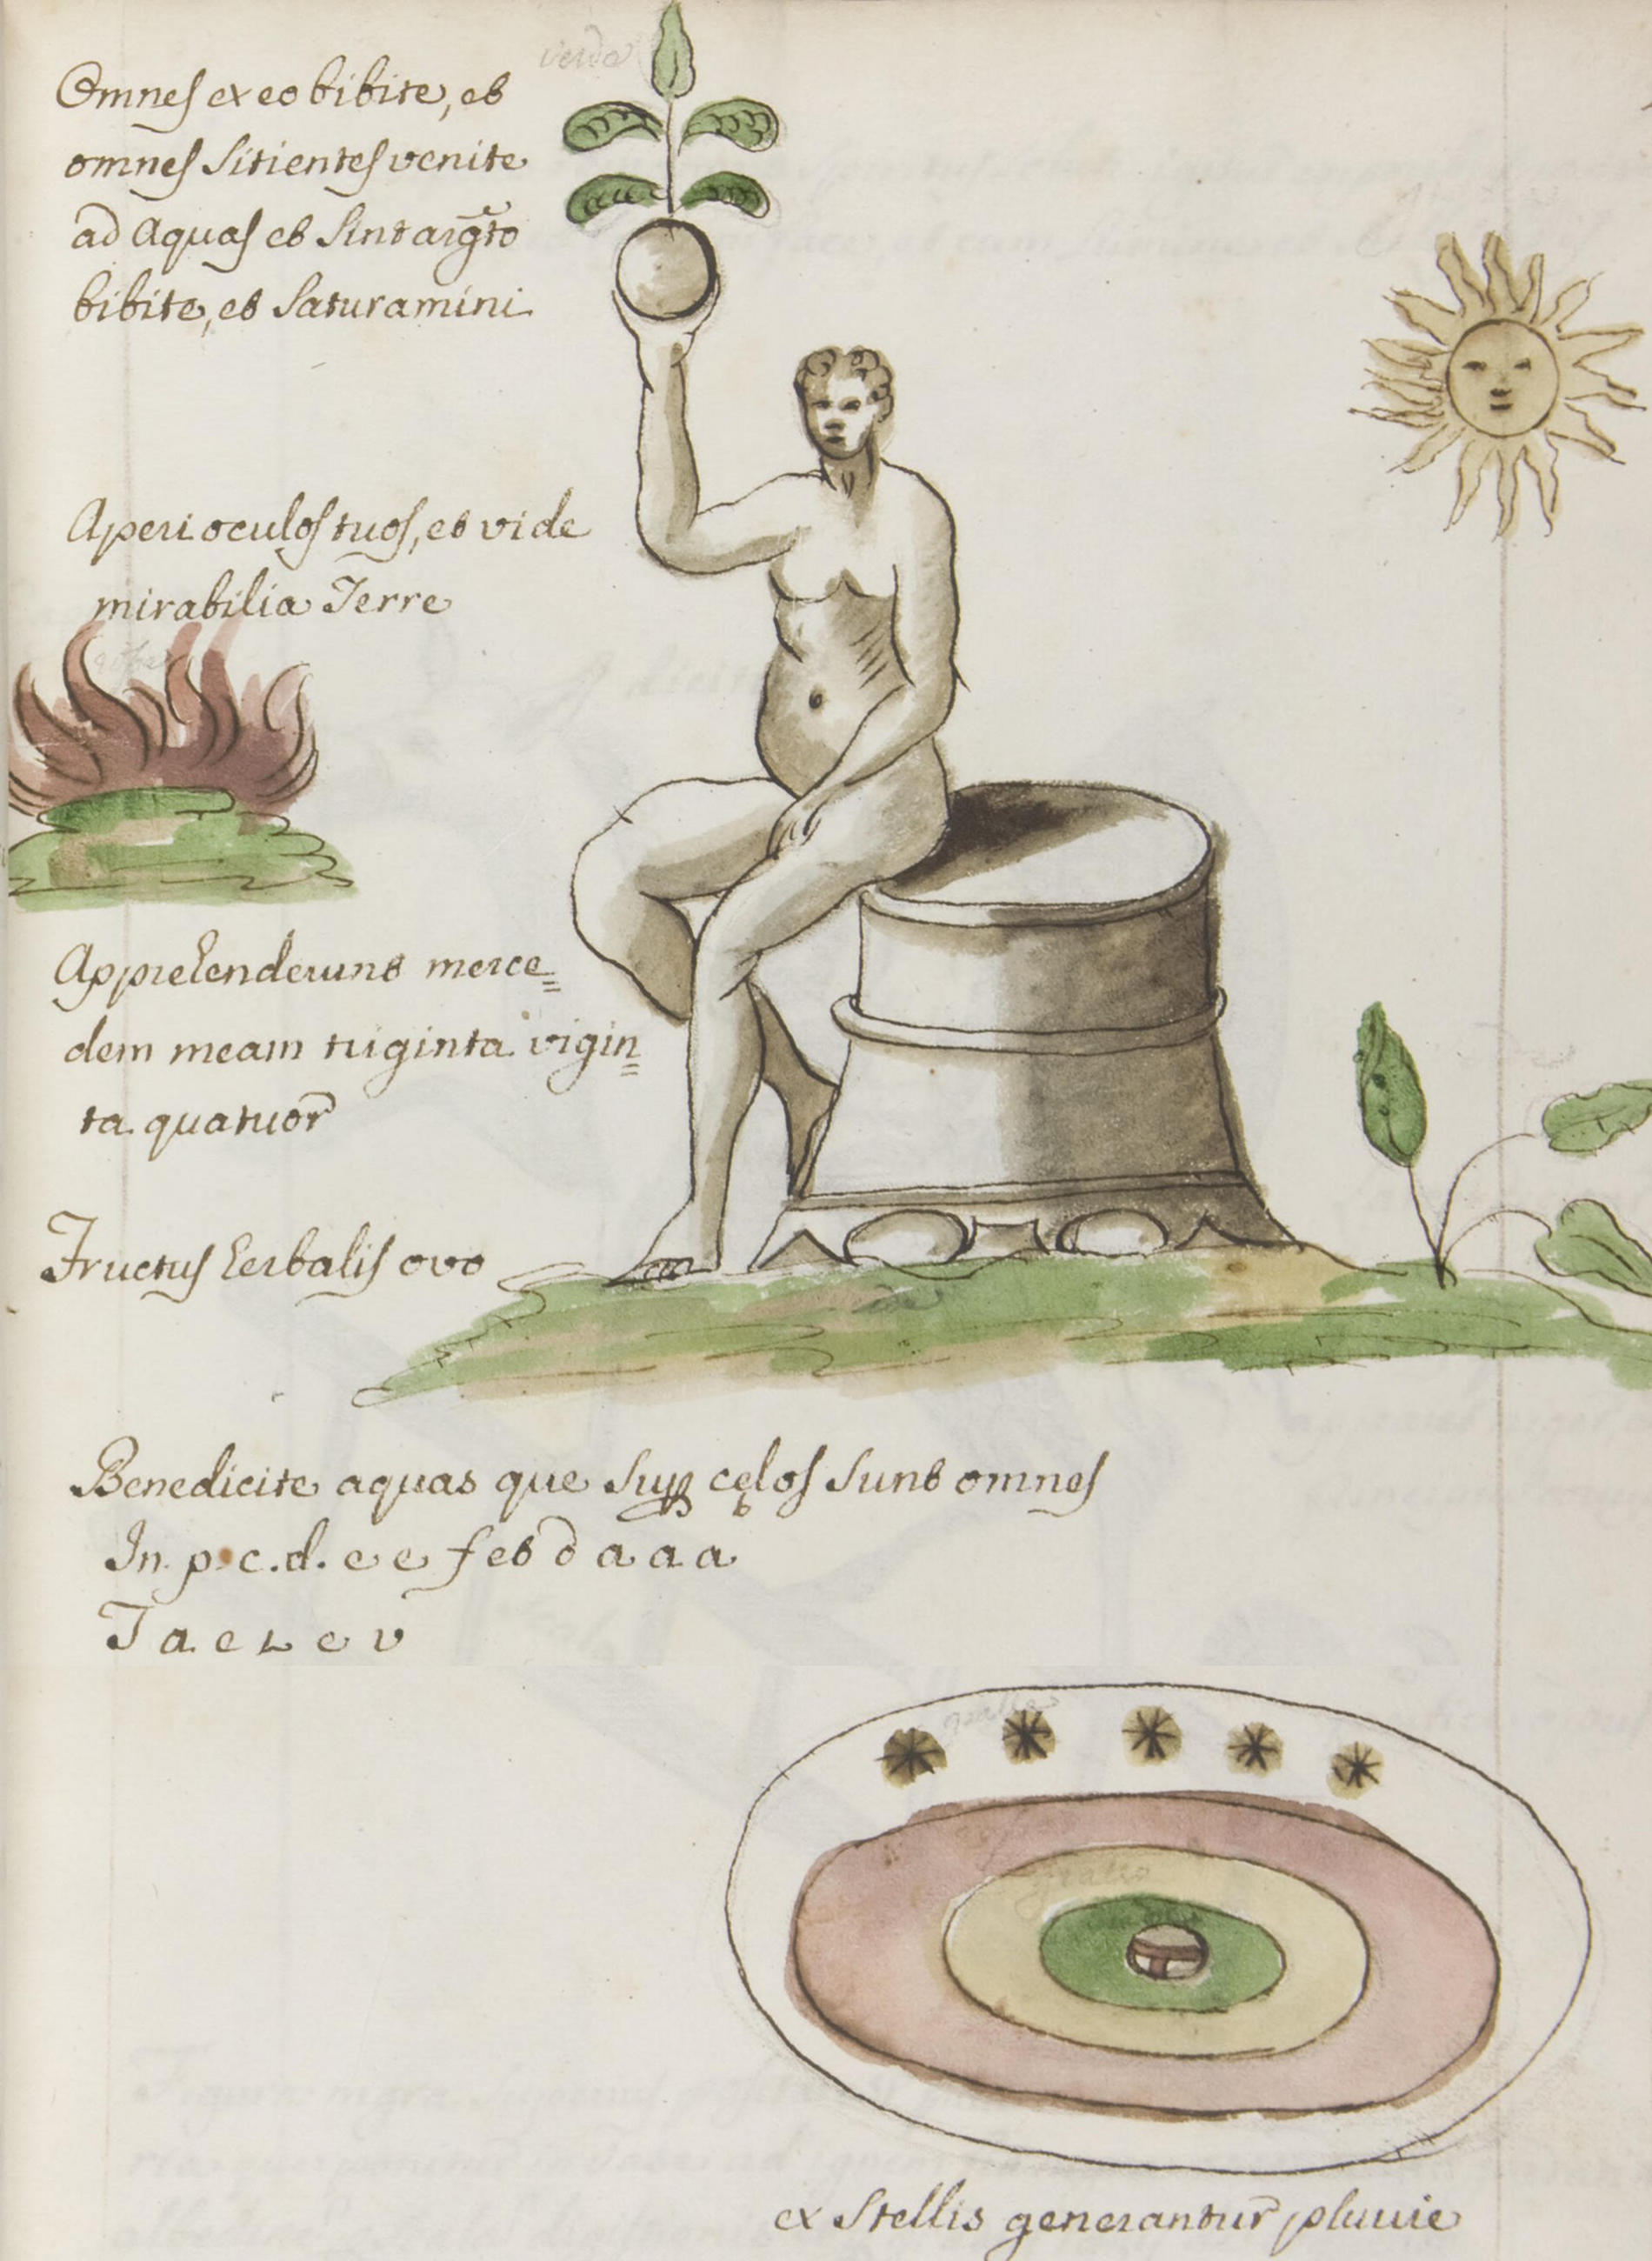 verde
Omnes ex eo bibite, et
omnes sitientes venite
ad aquas et sint argto
bibite, et saturamini
Aperi oculos tuos, et vide
mirabilia Terre
Apprehenderunt merce=
dem meam triginta vigin=
ta quatuor
Fructus herbalis ovo
Benedicite aquas que sup cęlos sunt omnes
In. p. c. d. e e f et d a a a
T a e L e v
giallo
ex stellis generantur pluvie